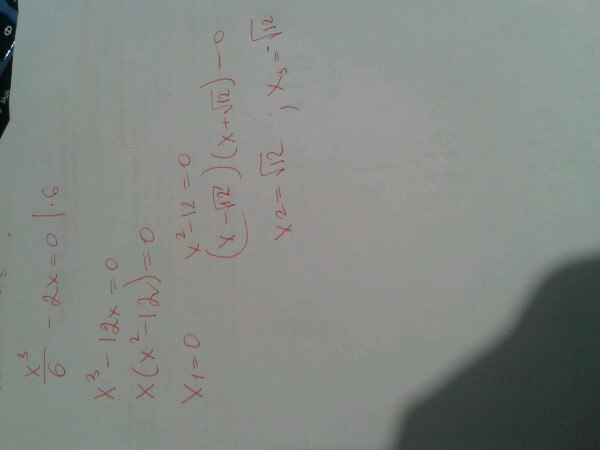 x³/6 - 2x = 0 | ·6
x³ - 12x = 0
x(x² - 12) = 0
x1 = 0 x² - 12 = 0
(x - √12)(x + √12) = 0
x2 = √12 , x3 = -√12